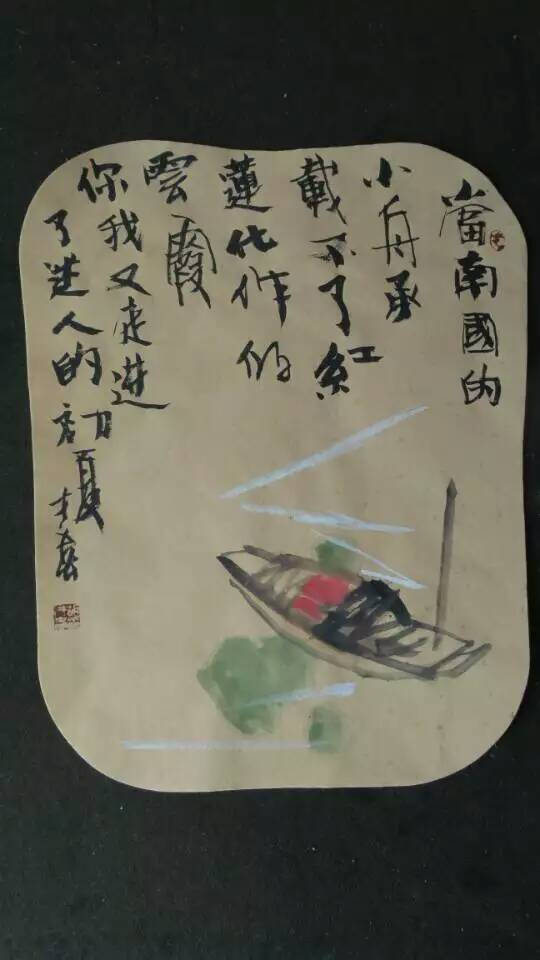 當南國的
小舟承
載不了紅
蓮化作的
雲霞
你我又走進
了迷人的初夏